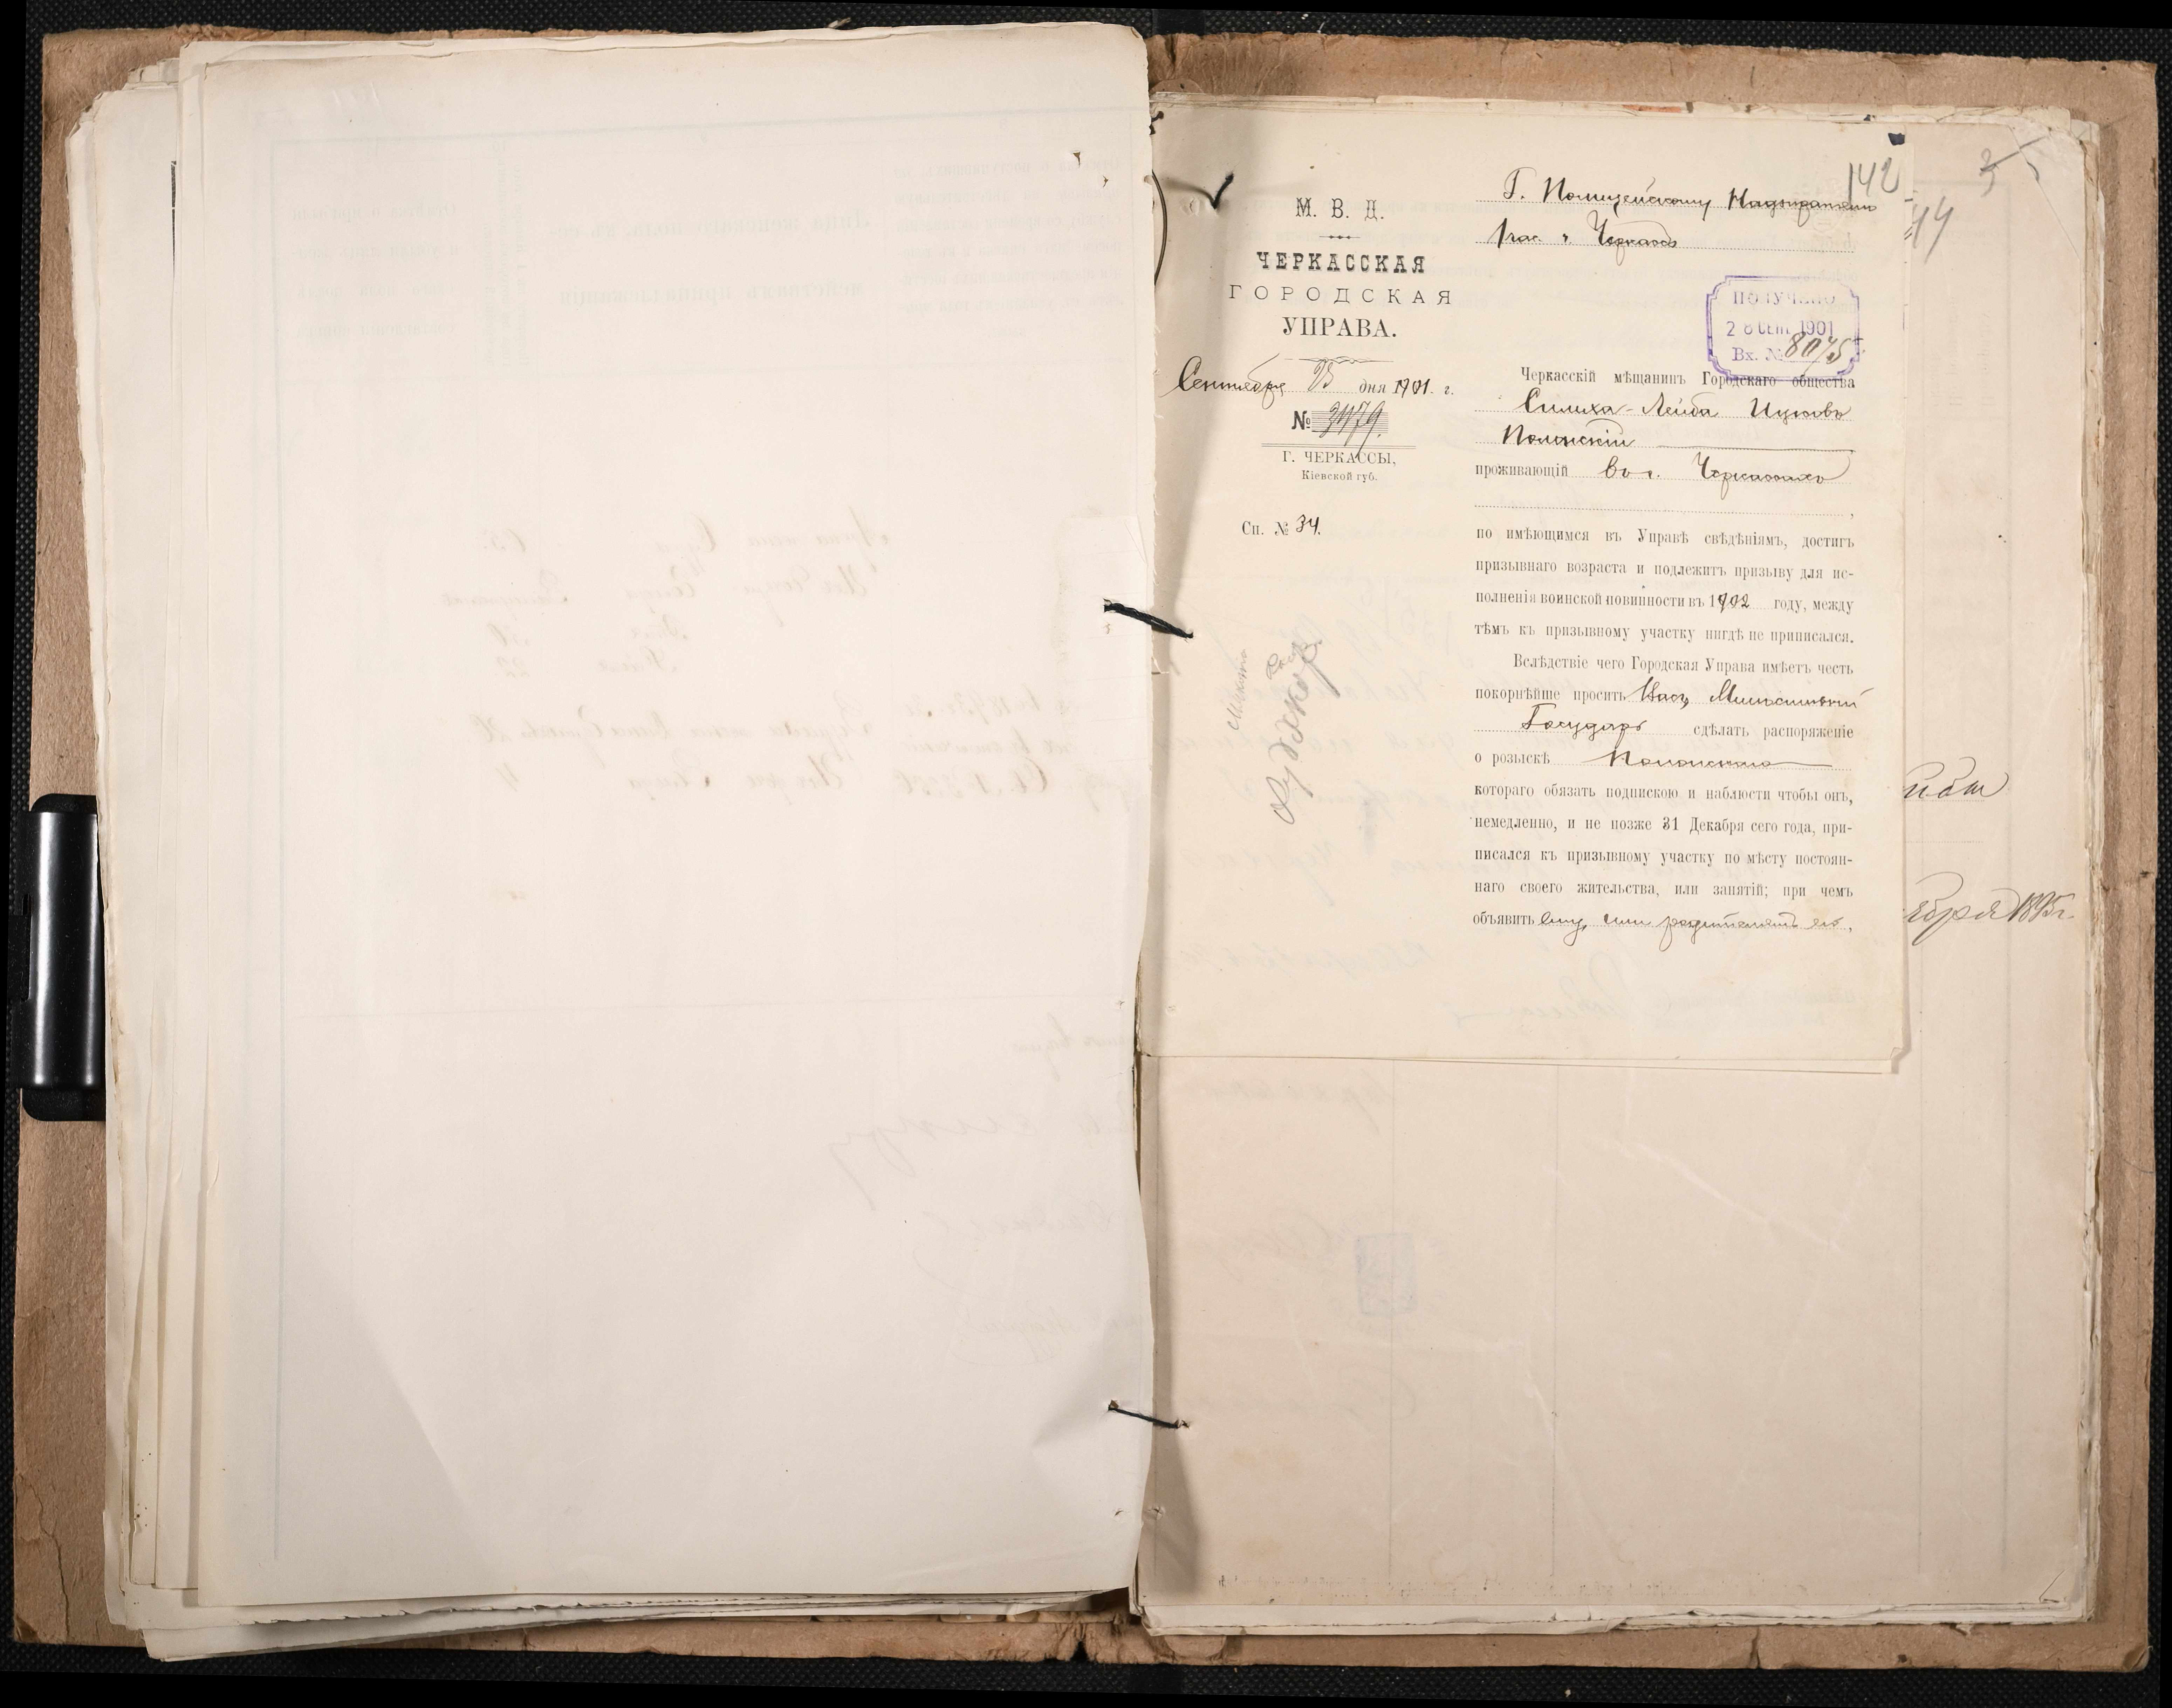 142
Г. Полицейскому Надзирателю
1 час. г. Черкассъ
М. В. Д.
ЧЕРКАССКАЯ
ГОРОДСКАЯ
УПРАВА.
Сентября дня 1901 г.
№ 3479.
Г. ЧЕРКАССЫ,
Кіевской губ.
Сп. № 34.
ПОЛУЧЕНО
28 СЕН. 1901
Вх. № 8075
Черкасскій мѣщанинъ Городскаго общества
Симха-Лейба Ицковъ
Полонскій
проживающій въ г. Черкассахъ
,
по имѣющимся въ Управѣ свѣдѣніямъ, достигъ
призывнаго возраста и подлежитъ призыву для ис-
полненія воинской повинности въ 1902 году, между
тѣмъ къ призывному участку нигдѣ не приписался.
Вслѣдствіе чего Городская Управа имѣетъ честь
покорнѣйше просить Васъ, Милостивый
Государь сдѣлать распоряженіе
о розыскѣ Полонскаго
котораго обязать подпискою и наблюсти чтобы онъ,
немедленно, и не позже 31 Декабря сего года, при-
писался къ призывному участку по мѣсту постоян-
наго своего жительства, или занятій; при чемъ
объявить ему, или родителямъ его,
44
3
ября 1895 г.